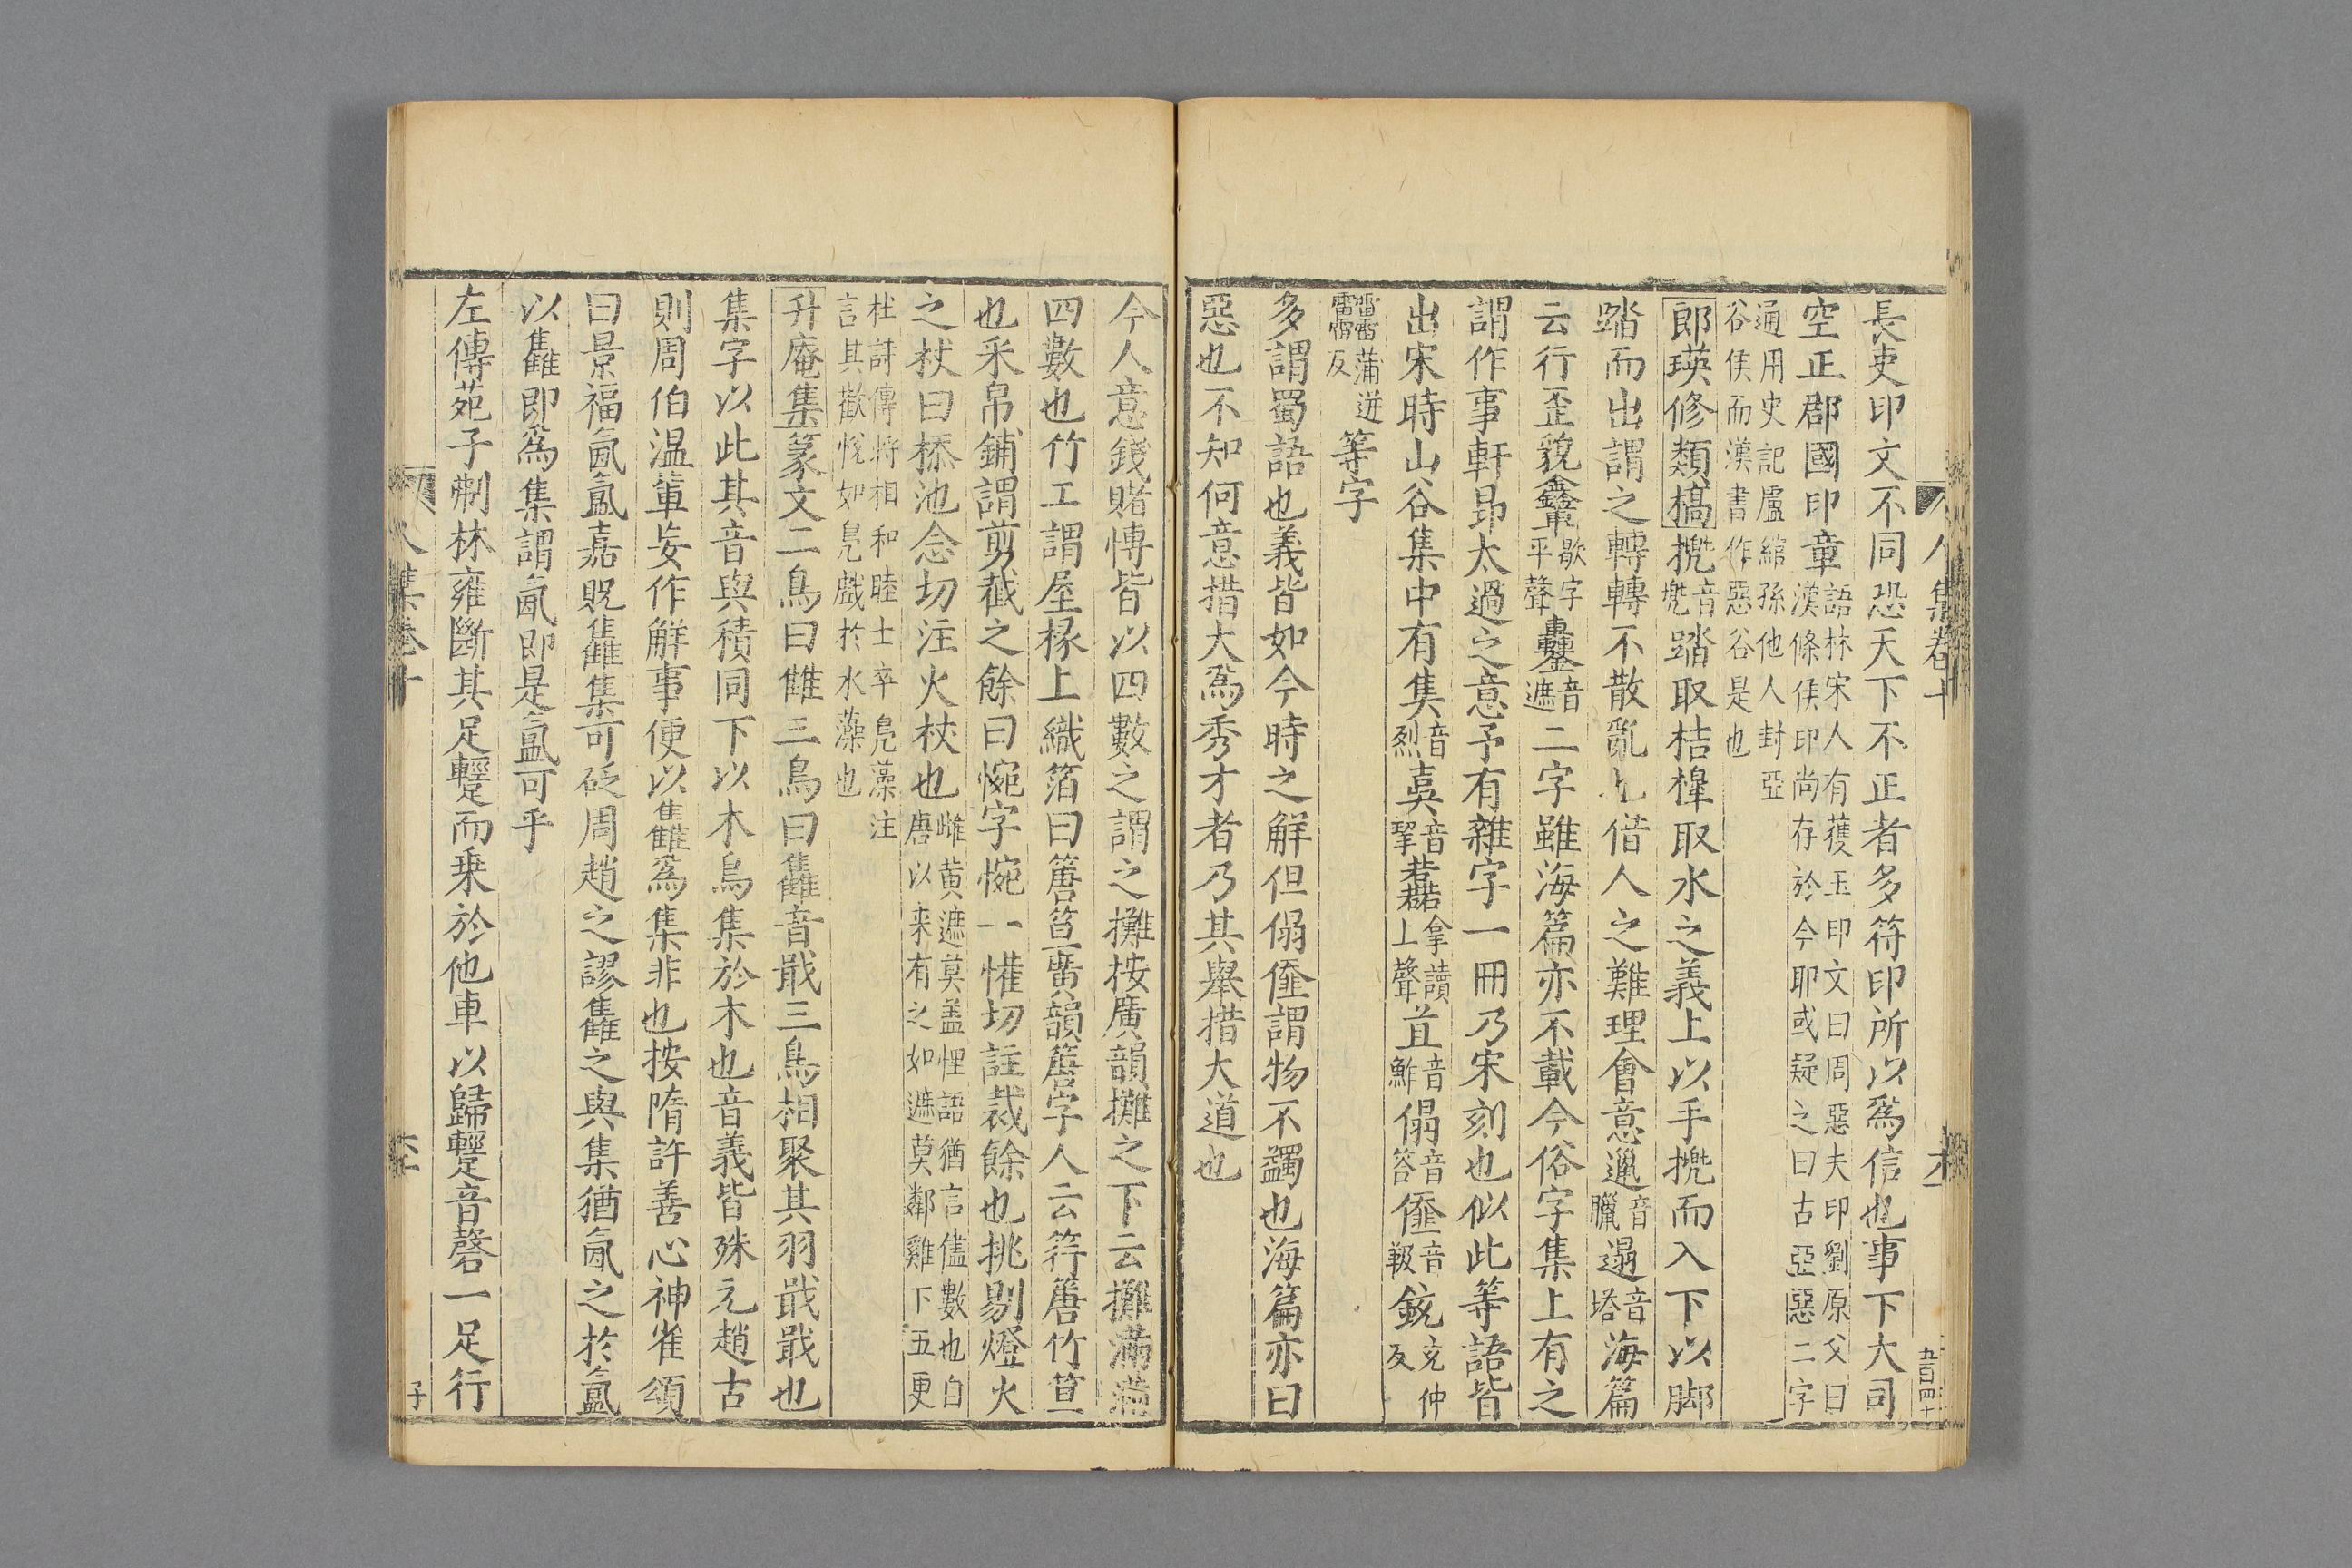 長吏印文不同恐天下不正者多符印所以爲信也事下大司
空正郡國印章語林宋人有獲玉印文曰周惡夫印劉原父曰漢條侯印尚存於今耶或疑之曰古亞惡二字
通用史記盧綰孫他人封亞谷侯而漢書作惡谷是也
郎瑛修類槁㨪音㙡踏取桔槹取水之義上以手㨪而入下以脚
踏而出謂之轉轉不散亂也借人之難理會意邋音臘遢音塔海篇
云行歪貌歇字平聲音遮二字雖海篇亦不載今俗字集上有之
謂作事軒昻太過之意予有雜字一冊乃宋刻也似此等語皆
出宋時山谷集中有音烈音挐拿讀上聲苴音鮓傝音答音靸銃充仲反
蒲迸反等字
多謂蜀語也義皆如今時之解但傝謂物不蠲也海篇亦曰
惡也不知何意措大爲秀才者乃其舉措大道也
今人意錢賭博皆以四數之謂之攤按廣韻攤之下云攤
四數也竹工謂屋椽上織箔曰笪廣韻字人云符竹笪
也釆帛鋪謂剪截之餘曰㡔字㡔一懽切註裁餘也挑剔燈火
之杖曰㮇池念切注火杖也雌黄遮莫盖俚語猶言儘數也自唐以来有之如遮莫鄰雞下五更
杜詩傳將相和睦士卒鳧藻注言其歡悅如鳧戲於水藻也
升庵集篆文二鳥曰雔三鳥曰雥音戢三鳥相聚其羽戢戢也
集字以此其音與積同下以木鳥集於木也音義皆殊元趙古
則周伯温軰妄作解事便以雥爲集非也按隋許善心神雀頌
曰景福氤氳嘉貺雥集可砭周趙之謬雥之與集猶氤之於氳
以雥即爲集謂氤即是氳可乎
左傳苑子㓨林雍斷其足䡖而乗於他車以歸䡖音磬一足行